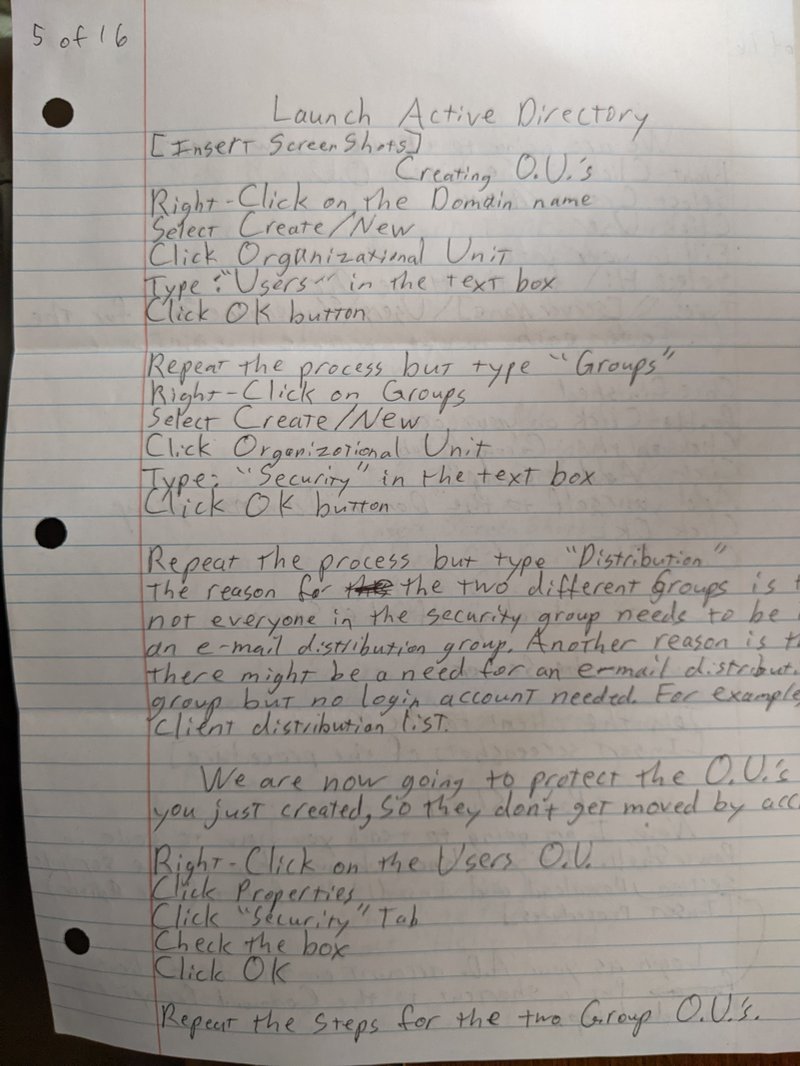 5 of 16
Launch Active Directory
[Insert ScreenShots]
Creating O.U.'s
Right-Click on the Domain name
Select Create/New
Click Organizational Unit
Type: "Users" in the text box
Click OK button
Repeat the process but type "Groups"
Right-Click on Groups
Select Create/New
Click Organizational Unit
Type: "Security" in the text box
Click OK button
Repeat the process but type "Distribution"
The reason for the two different Groups is
not everyone in the security group needs to be
an e-mail distribution group. Another reason is
there might be a need for an e-mail distribut
group but no login account needed. For example,
Client distribution list.
We are now going to protect the O.U.'s
you just created, so they don't get moved by acc
Right-Click on the Users O.U.
Click Properties
Click "Security" Tab
Check the box
Click OK
Repeat the steps for the two Group O.U.'s.